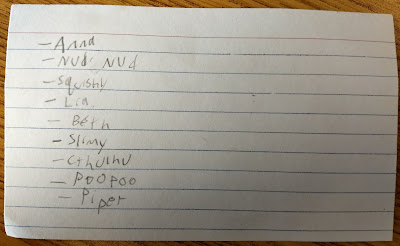 - Anna
- Nud Nud
- Squishy
- Lia
- Beth
- Slimy
- Cthulhu
- POOPOO
- Piper